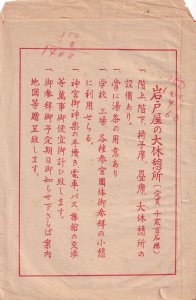 岩戸屋の大休憩所
一、階上、階下、椅子席、疊席、大休憩所の
設備あり。
一、常に湯茶の用意あり
一、學校、工場、各種参宮團体御参拜の小憩
に利用せらる。
神宮御神樂の手續き、電車、バス、旅館の交渉
等萬事御便宜御計ひ致します。
一、御参拜御予定期日御知らせ下さらば案内
地図等贈呈致します。